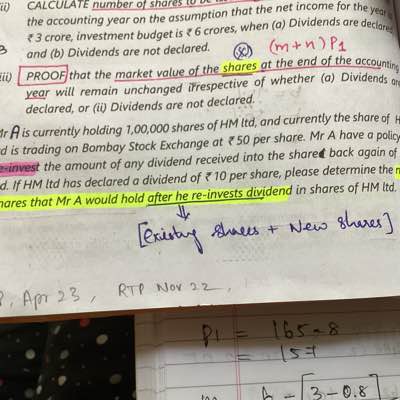 ii) CALCULATE number of shares to be
the accounting year on the assumption that the net income for the year is
₹ 3 crore, investment budget is ₹ 6 crores, when (a) Dividends are declared
and (b) Dividends are not declared. (x) (m+n) P1
iii) PROOF that the market value of the shares at the end of the accounting
year will remain unchanged irrespective of whether (a) Dividends are
declared, or (ii) Dividends are not declared.
Mr A is currently holding 1,00,000 shares of HM ltd, and currently the share of H
d is trading on Bombay Stock Exchange at ₹ 50 per share. Mr A have a policy
re-invest the amount of any dividend received into the shares back again of
d. If HM ltd has declared a dividend of ₹ 10 per share, please determine the n
hares that Mr A would hold after he re-invests dividend in shares of HM ltd.
[existing shares + New shares]
Apr 23, RTP Nov 22,
P1 = 165 - 8
= 157
[3 - 0.8]